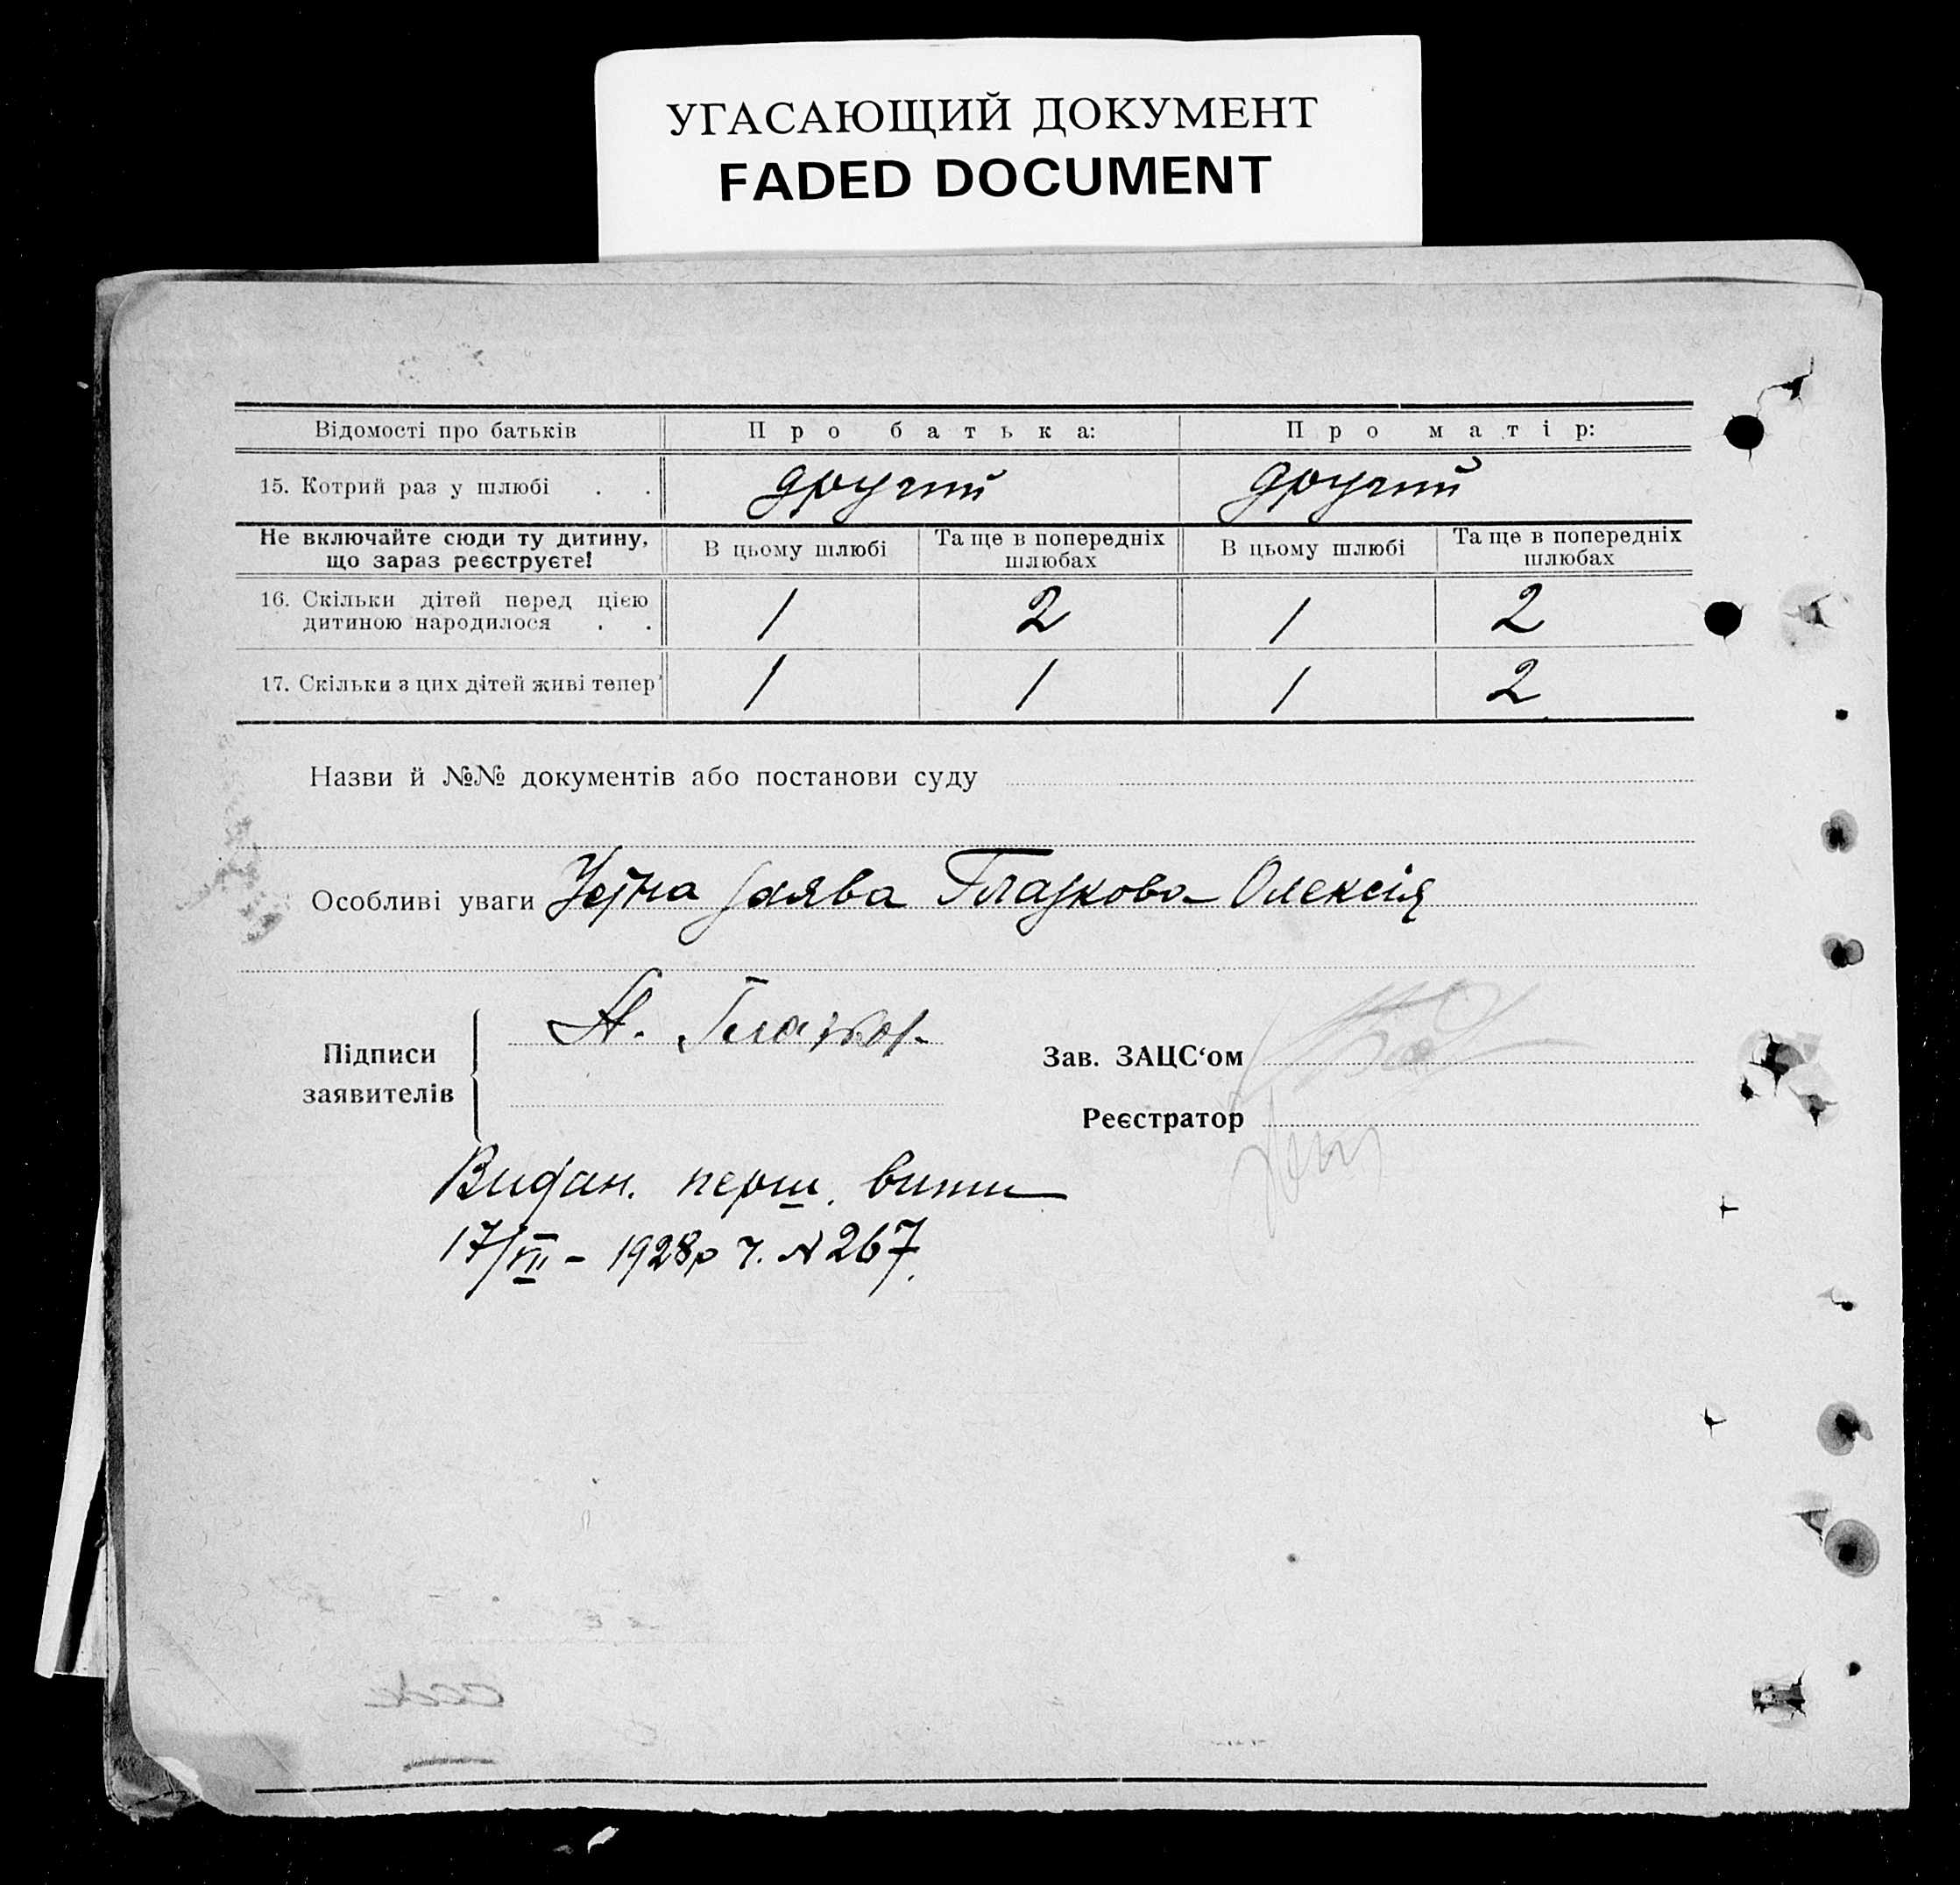 УГАСАЮЩИЙ ДОКУМЕНТ
FADED DOCUMENT
Відомості про батьків Про батька: Про матір:
15. Котрий раз у шлюбі . . другий другий
Не включайте сюди ту дитину, що зараз реєструєте! В цьому шлюбі Та ще в попередніх шлюбах В цьому шлюбі Та ще в попередніх шлюбах
16. Скільки дітей перед цією
дитиною народилося . . 1 2 1 2
17. Скільки з цих дітей живі тепер 1 1 1 2
Назви й №№ документів або постанови суду
Особливі уваги Устна заява Глазкова Олексія
Підписи
заявителів
А. Глазков
Зав. ЗАЦС‘ом
Реєстратор
Видан. перш. витяг
17/VII – 1928р ч. № 267.